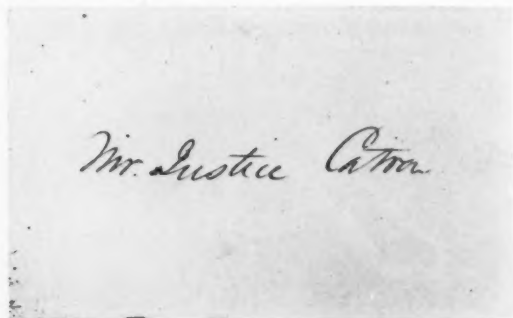 Mr. Justice Catron